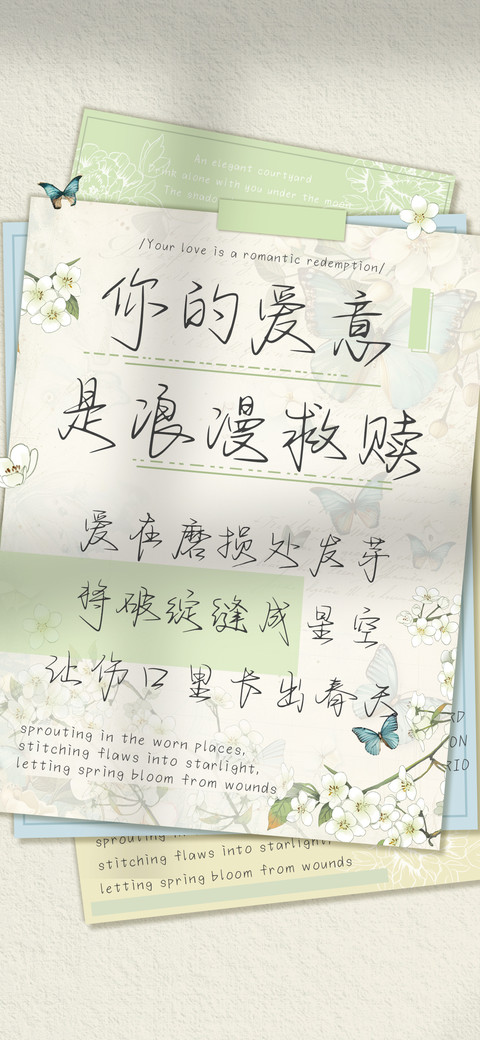 An elegant courtyard
Drink alone with you under the moon
The shado
/Your love is a romantic redemption/
你的爱意
是浪漫救赎
爱在磨损处发芽
将破绽缝成星空
让伤口里长出春天
sprouting in the worn places,
stitching flaws into starlight,
letting spring bloom from wounds
RD
ON
RID
sprouting in
stitching flaws into starlight,
letting spring bloom from wounds